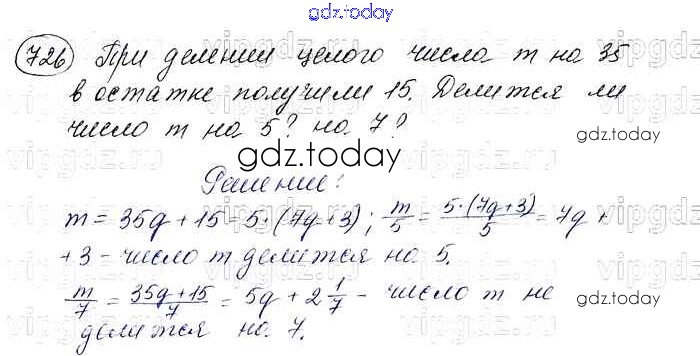 gdz.today
726 При делении целого числа m на 35
в остатке получили 15. Делится ли
число m на 5? на 7?
gdz.today
gdz.today
Решение:
m = 35q + 15 = 5·(7q+3); m/5 = 5·(7q+3)/5 = 7q +
+3 – число m делится на 5.
m/7 = 35q+15/7 = 5q + 2 1/7 – число m не
gdz.today
делится на 7.